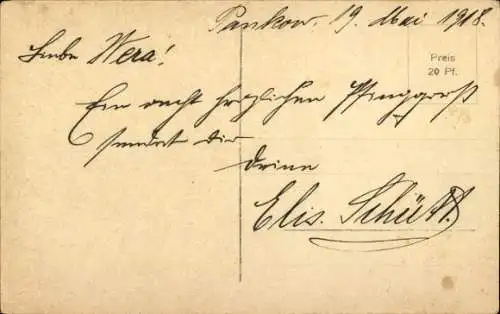 Pankow, 19. Mai 1918.
Liebe Wera!
Preis
20 Pf.
Ein recht herzlichen Pfinggruß
sendet dir
Deine
Elis. Schütt.